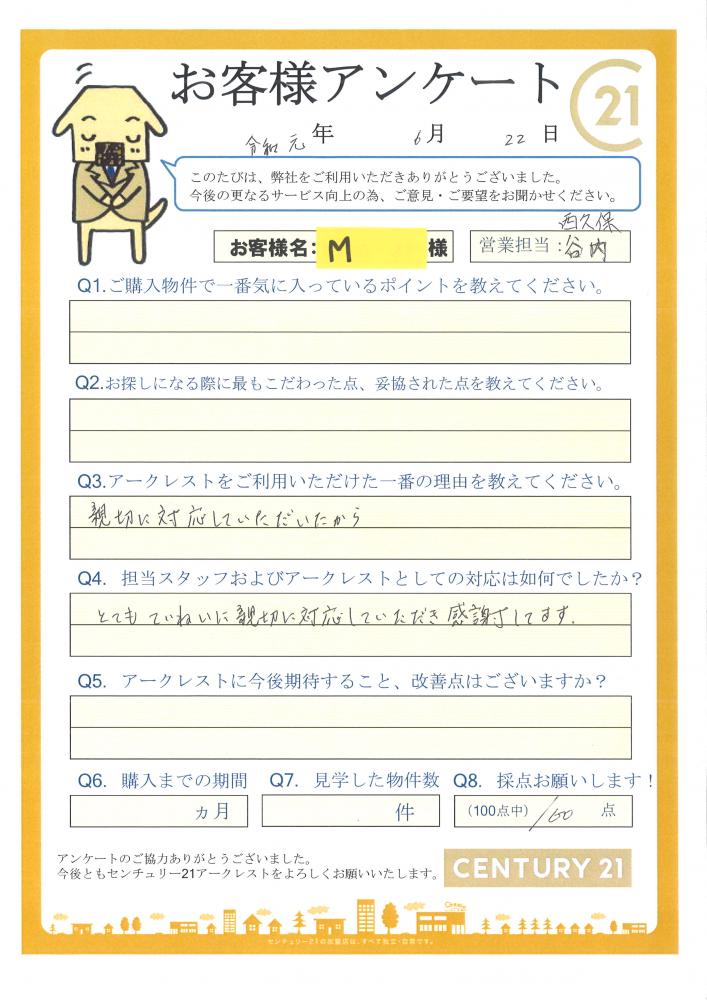 お客様アンケート
21
令和元年 6月 22日
このたびは、弊社をご利用いただきありがとうございました。
今後の更なるサービス向上の為、ご意見・ご要望をお聞かせください。
西久保
お客様名：M 様 営業担当：谷内
Q1.ご購入物件で一番気に入っているポイントを教えてください。
Q2.お探しになる際に最もこだわった点、妥協された点を教えてください。
Q3.アークレストをご利用いただけた一番の理由を教えてください。
親切に対応していただいたから
Q4. 担当スタッフおよびアークレストとしての対応は如何でしたか？
とてもていねいに親切に対応していただき感謝してます.
Q5. アークレストに今後期待すること、改善点はございますか？
Q6. 購入までの期間 Q7. 見学した物件数 Q8. 採点お願いします！
ヵ月 件 (100点中) 100 点
アンケートのご協力ありがとうございました。
今後ともセンチュリー21アークレストをよろしくお願いいたします。
CENTURY 21
センチュリー21の加盟店は、すべて独立・自営です。